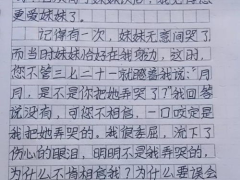 更爱妹妹了。
记得有一次，妹妹无意间哭了
而当时妹妹恰好在我旁边，这时，
您不管三七二十一就瞪着我说："月
月，是不是你把她弄哭了？"我回答
说没有，可您不相信，一口咬定是
我把她弄哭的。我很委屈，流下了
伤心的眼泪，明明不是我弄哭的，
为什么不肯相信我？为什么要误会